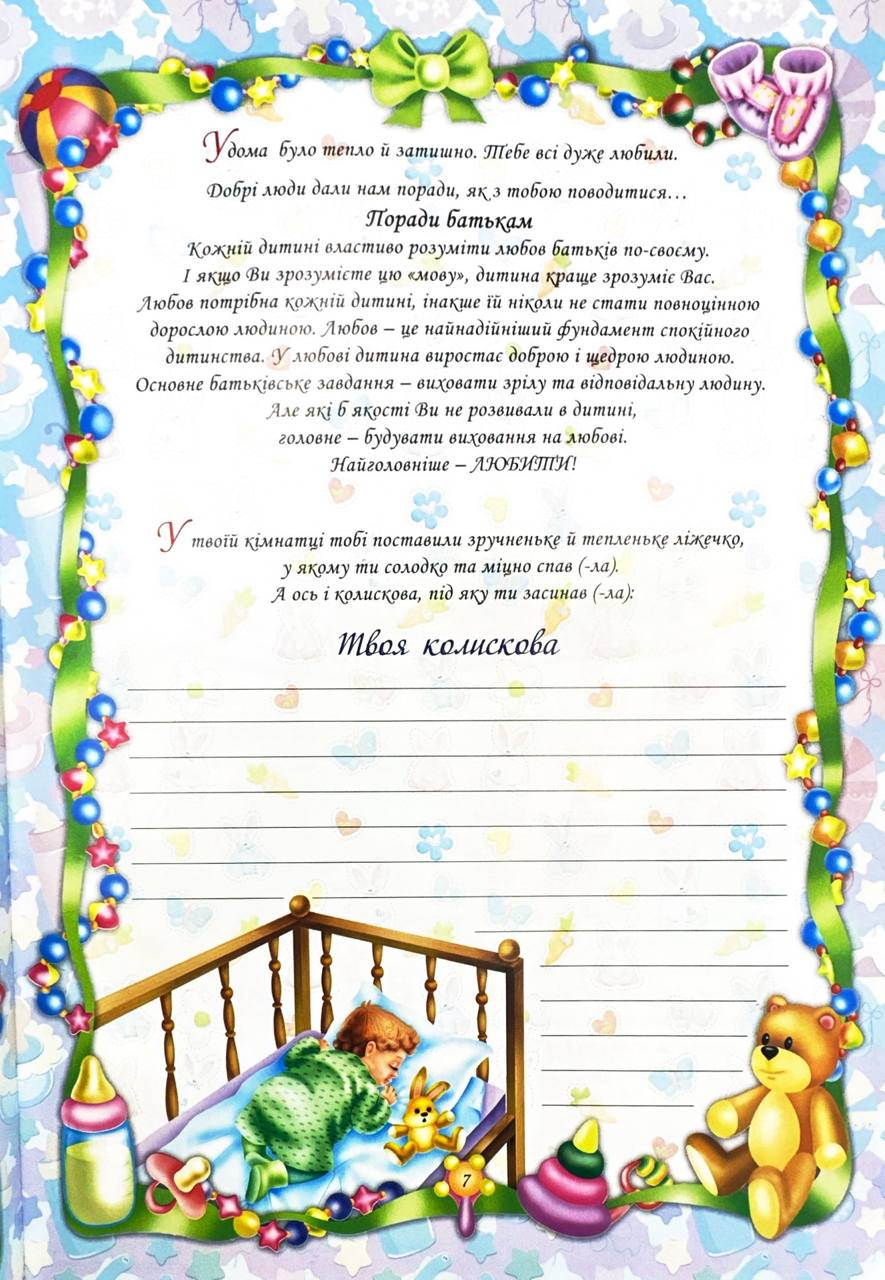 Удома було тепло й затишно. Тебе всі дуже любили.
Добрі люди дали нам поради, як з тобою поводитися...
Поради батькам
Кожній дитині властиво розуміти любов батьків по-своєму.
І якщо Ви зрозумієте цю «мову», дитина краще зрозуміє Вас.
Любов потрібна кожній дитині, інакше їй ніколи не стати повноцінною
дорослою людиною. Любов – це найнадійніший фундамент спокійного
дитинства. У любові дитина виростає доброю і щедрою людиною.
Основне батьківське завдання – виховати зрілу та відповідальну людину.
Але які б якості Ви не розвивали в дитині,
головне – будувати виховання на любові.
Найголовніше – ЛЮБИТИ!
У твоїй кімнатці тобі поставили зручненьке й тепленьке ліжечко,
у якому ти солодко та міцно спав (-ла).
А ось і колискова, під яку ти засинав (-ла):
Твоя колискова
7